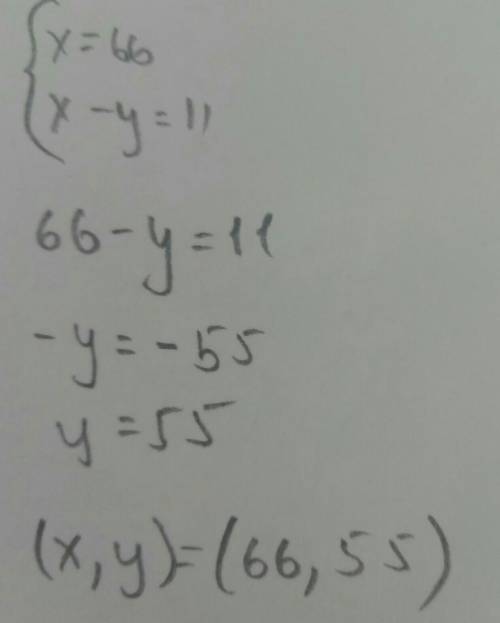 x = 66
x - y = 11
66 - y = 11
- y = - 55
y = 55
(x, y) = (66, 55)